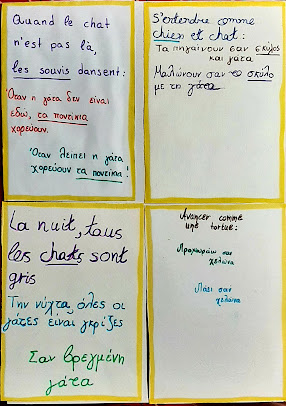 Quand le chat
n'est pas là,
les souris dansent:
Όταν η γάτα δεν είναι
εδώ, τα ποντίκια
χορεύουν.
Όταν λείπει η γάτα
χορεύουν τα ποντίκια!
S'entendre comme
chien et chat:
Τα πηγαίνουν σαν σκύλος
και γάτα
Μαλώνουν σαν το σκύλο
με τη γάτα.
La nuit, tous
les chats sont
gris
Την νύχτα, όλες οι
γάτες είναι γκρίζες
Σαν βρεγμένη
γάτα
Avancer comme
une tortue:
Προχωράω σαν
χελώνα
Πάει σαν
χελώνα